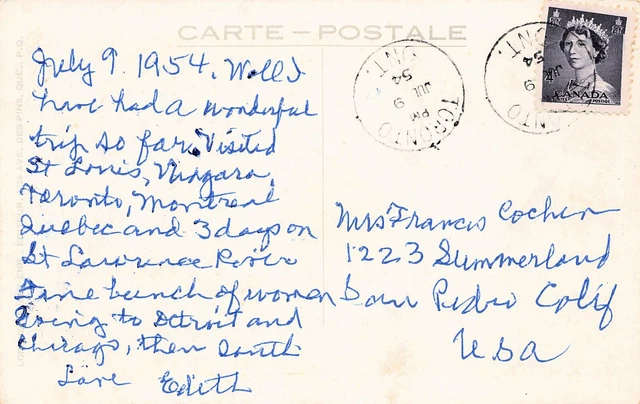 CARTE-POSTALE
July 9. 1954. Well I
have had a wonderful
trip so far. Visited
St Louis, Niagara,
Toronto, Montreal
Quebec and 3 days on
St Lawrence River
Fine bunch of women
Going to Detroit and
Chicago, then South
Love Edith
Mrs Francis Cochen
1223 Summerland
San Pedro Calif
USA
TORONTO
ONT.
PM
JUL 9
54
TORONTO
ONT.
9
54
CANADA
POSTES POSTAGE